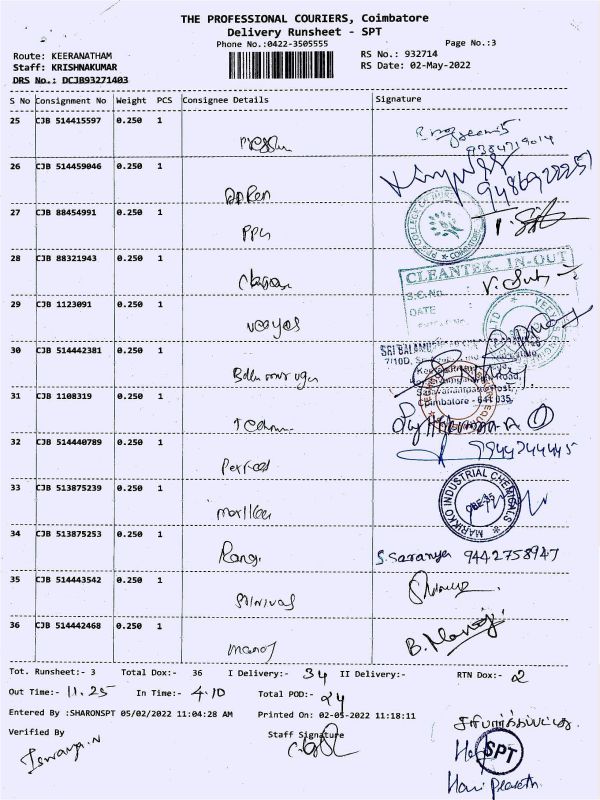 THE PROFESSIONAL COURIERS, Coimbatore
Delivery Runsheet - SPT
Phone No.:0422-3505555
Page No.:3
Route: KEERANATHAM
RS No.: 932714
Staff: KRISHNAKUMAR
RS Date: 02-May-2022
DRS No.: DCJB93271403
S No Consignment No Weight PCS Consignee Details Signature
25 CJB 514415597 0.250 1
26 CJB 514459046 0.250 1
9486922251
27 CJB 88454991 0.250 1
PPG
COIMBATORE
28 CJB 88321943 0.250 1
CLEANTEK. IN-OUT
S.C.No.
DATE
29 CJB 1123091 0.250 1
veejos
30 CJB 514442381 0.250 1
Balamuruga
Coimbatore - 641 035
31 CJB 1108319 0.250 1
32 CJB 514440789 0.250 1
Perfect
9944244445
33 CJB 513875239 0.250 1
MARIKKO INDUSTRIAL CHEMICALS
CBE-35
34 CJB 513875253 0.250 1
Rangi
S. Saranya 9442758947
35 CJB 514443542 0.250 1
Srinivas
36 CJB 514442468 0.250 1
manoj
B. Manoji
Tot. Runsheet:- 3 Total Dox:- 36 I Delivery:- 34 II Delivery:- RTN Dox:- 2
Out Time:- 11.25 In Time:- 4.10 Total POD:- 24
Entered By :SHARONSPT 05/02/2022 11:04:28 AM Printed On: 02-05-2022 11:18:11
Verified By
Staff Signature
Iswarya.N
சரிபார்க்கப்பட்டது
SPT
Hari Prasath